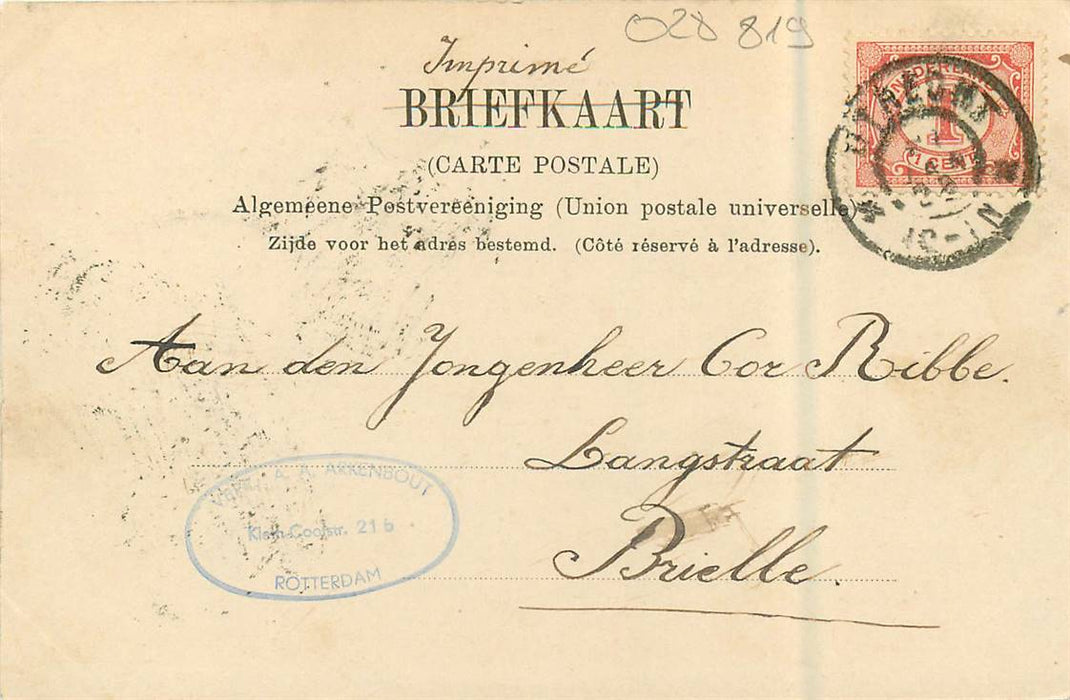 028 819
Imprimé
BRIEFKAART
(CARTE POSTALE)
Algemeene Postvereeniging (Union postale universelle)
Zijde voor het adres bestemd. (Côté réservé à l'adresse).
NEDERLAND
1
1 CENT
Aan den Jongenheer Cor Ribbe.
Langstraat
Brielle.
A. A. ARKENBOUT
Klein-Coolstr. 21b
ROTTERDAM